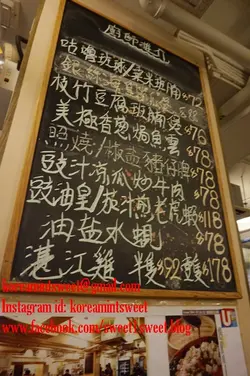 廚師推介
咕嚕班球/粟米班腩$72
枝竹豆腐班腩煲$76
美極香葱焗魚雲$78
照燒/椒鹽豬仔骨$78
豉汁涼瓜炒牛肉$78
豉油皇/豉汁老虎蝦$118
油鹽水蜆$78
湛江雞 半$92隻$178
koreamintsweet@gmail.com
Instagram id: koreamintsweet
www.facebook.com/sweet1sweet.blog
U